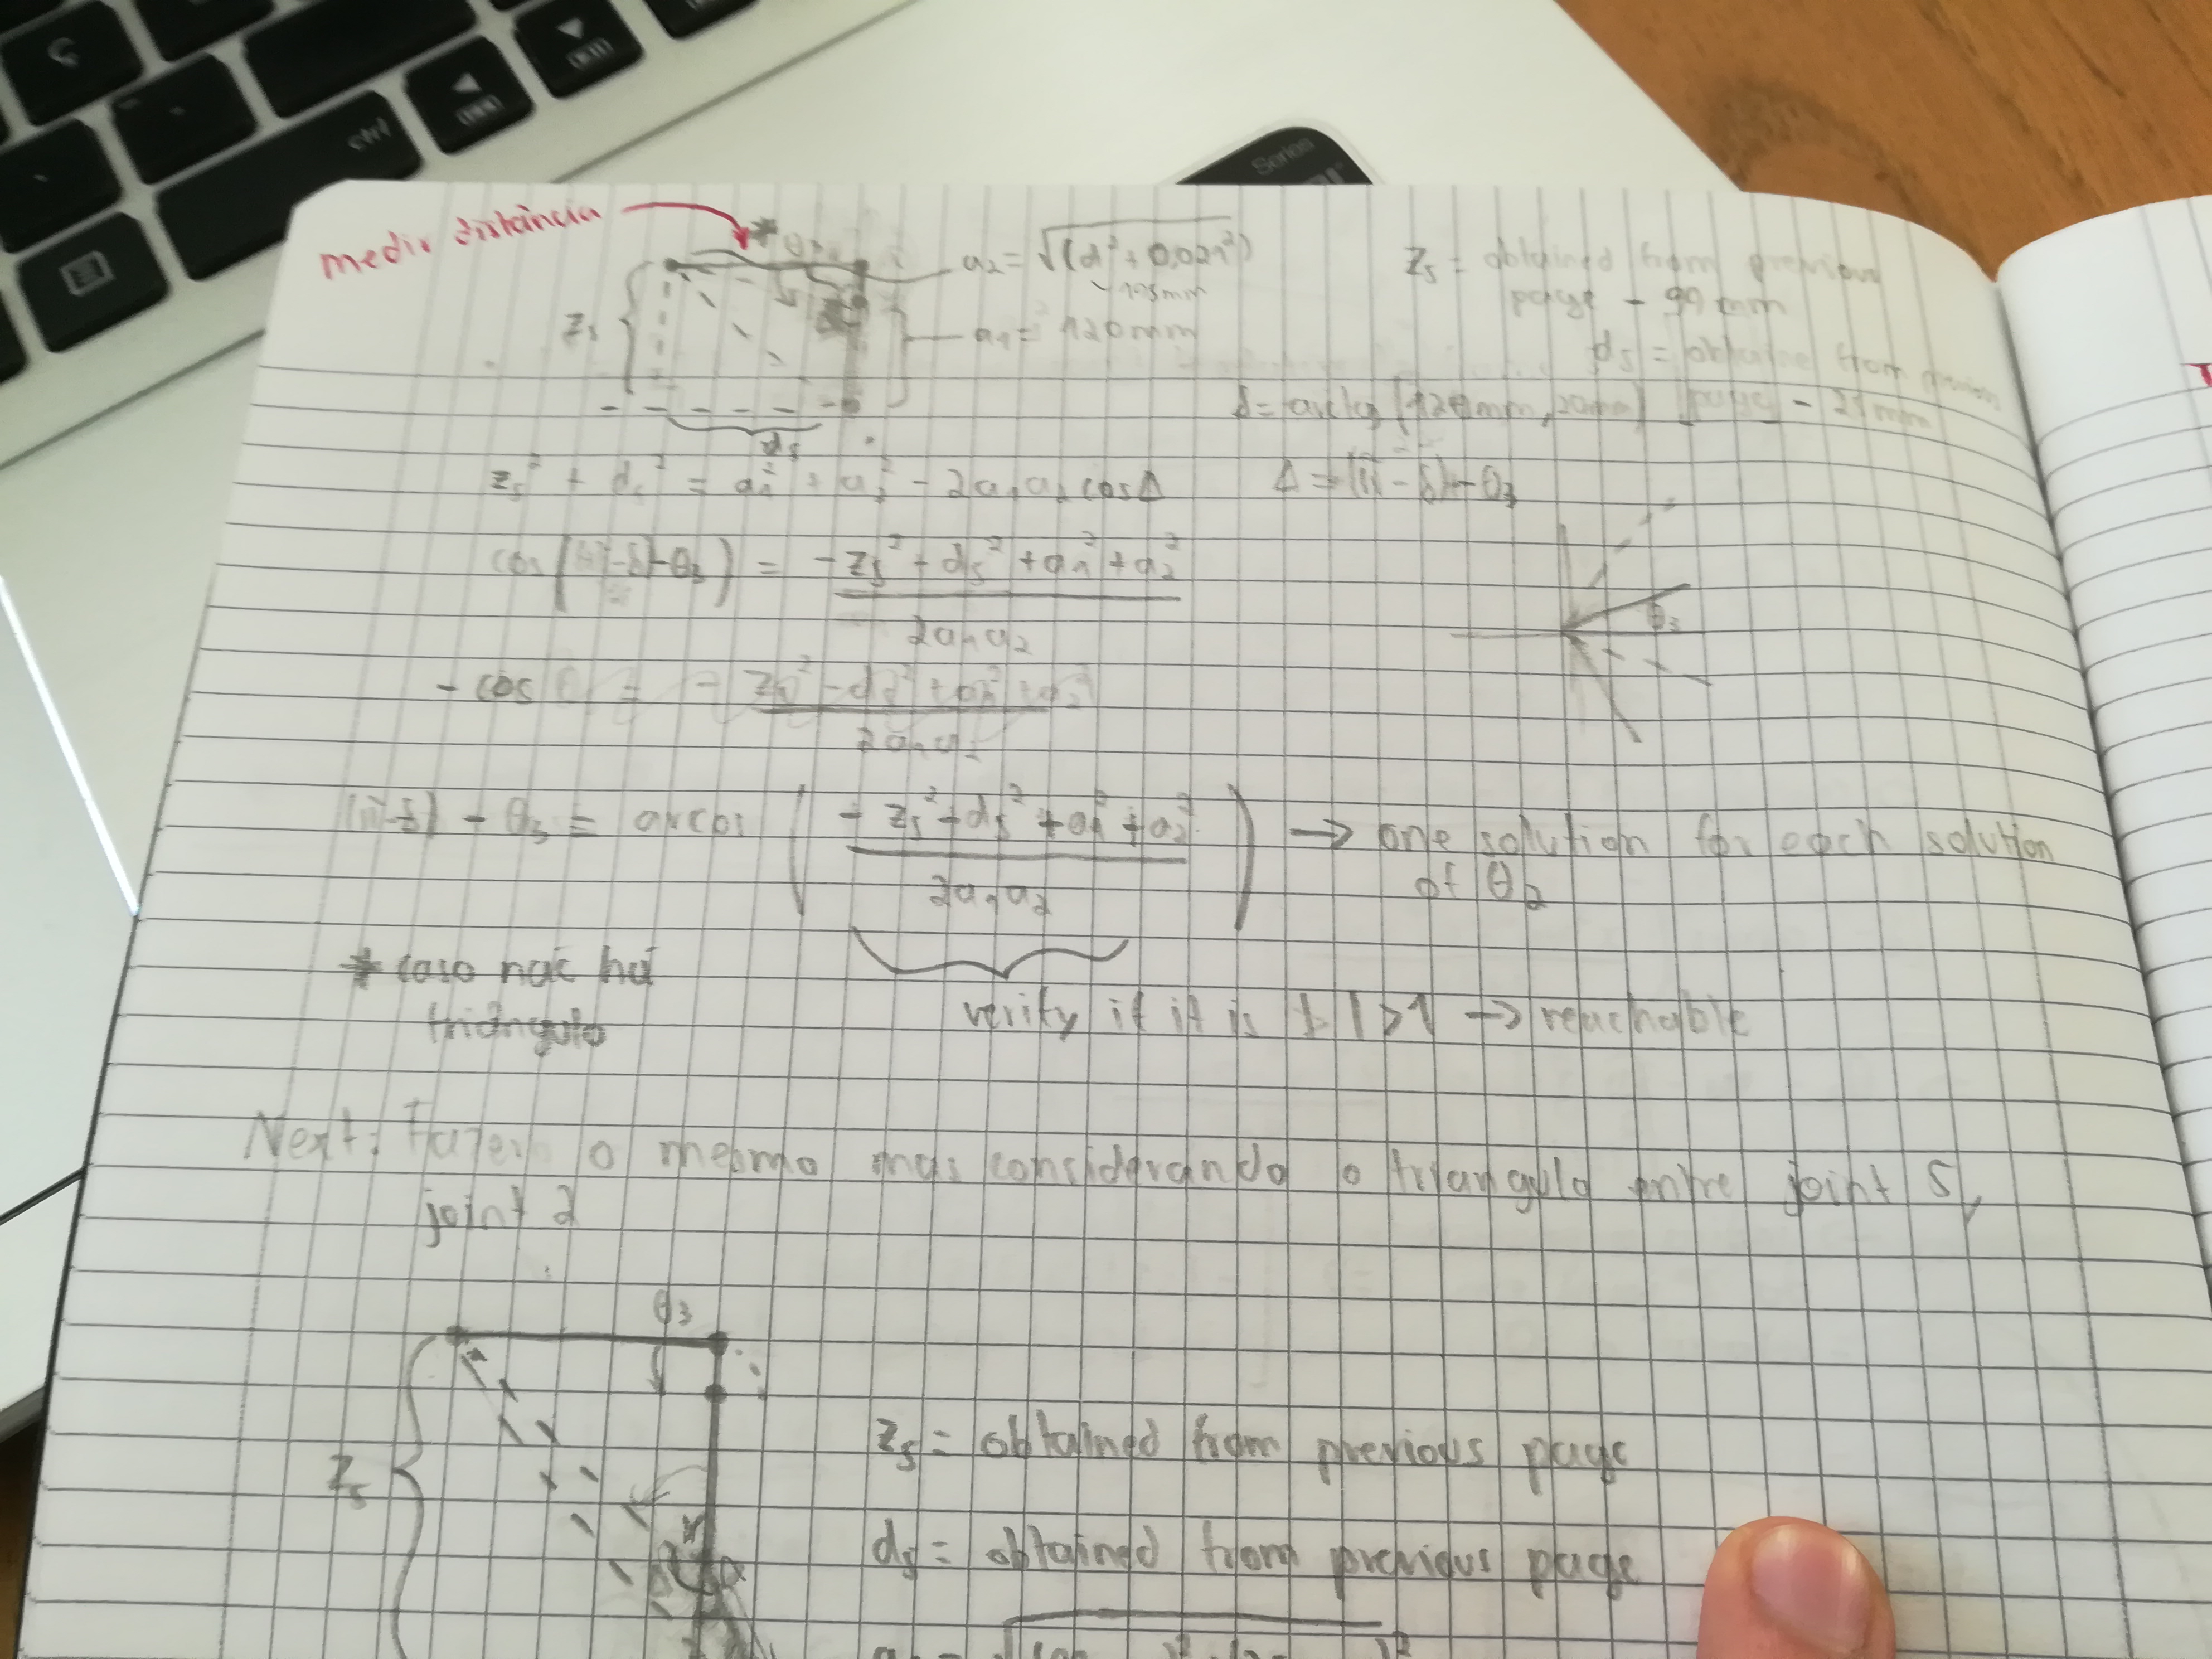 ctrl
Series
medir distância
* θ3
a2 = √(d² + 0,021²)
~ 105mm
z5
a1 = 120mm
d5
z5 = obtained from previous
page - 99 mm
d5 = obtaine from
page - 21 mm
δ = arctg (120mm, 20mm)
z5² + d5² = a1² + a2² - 2a1a2 cosΔ
Δ = (π - δ) - θ3
cos((π-δ)-θ3) = -z5² + d5² + a1² + a2²
2a1a2
θ3
- cos = - z5² - d5² + a1² + a2²
2a1a2
(π-δ) - θ3 = arcos ( - z5² + d5² + a1² + a2² / 2a1a2 ) → one solution for each solution
of θ2
* caso naõ há
triângulo
verify if it is | | > 1 → reachable
Next: Fazer o mesmo mas considerando o triangulo entre joint 5,
joint 2
θ3
z5
z5 = obtained from previous page
d5 = obtained from previous page